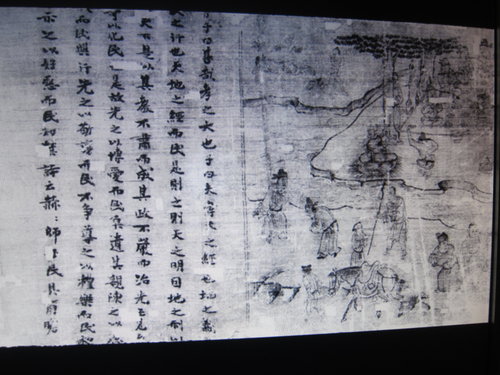 子曰甚哉孝之大也子曰夫孝天之經也地之義
之行也天地之經而民是則之則天之明因地之利以
天下是以其教不肅而成其政不嚴而治先王見
可以化民也是故先之以博愛而民莫遺其親陳之以
而民興行先之以敬讓而民不爭導之以禮樂而民和
示之以好惡而民知禁詩云赫:師尹民具爾瞻